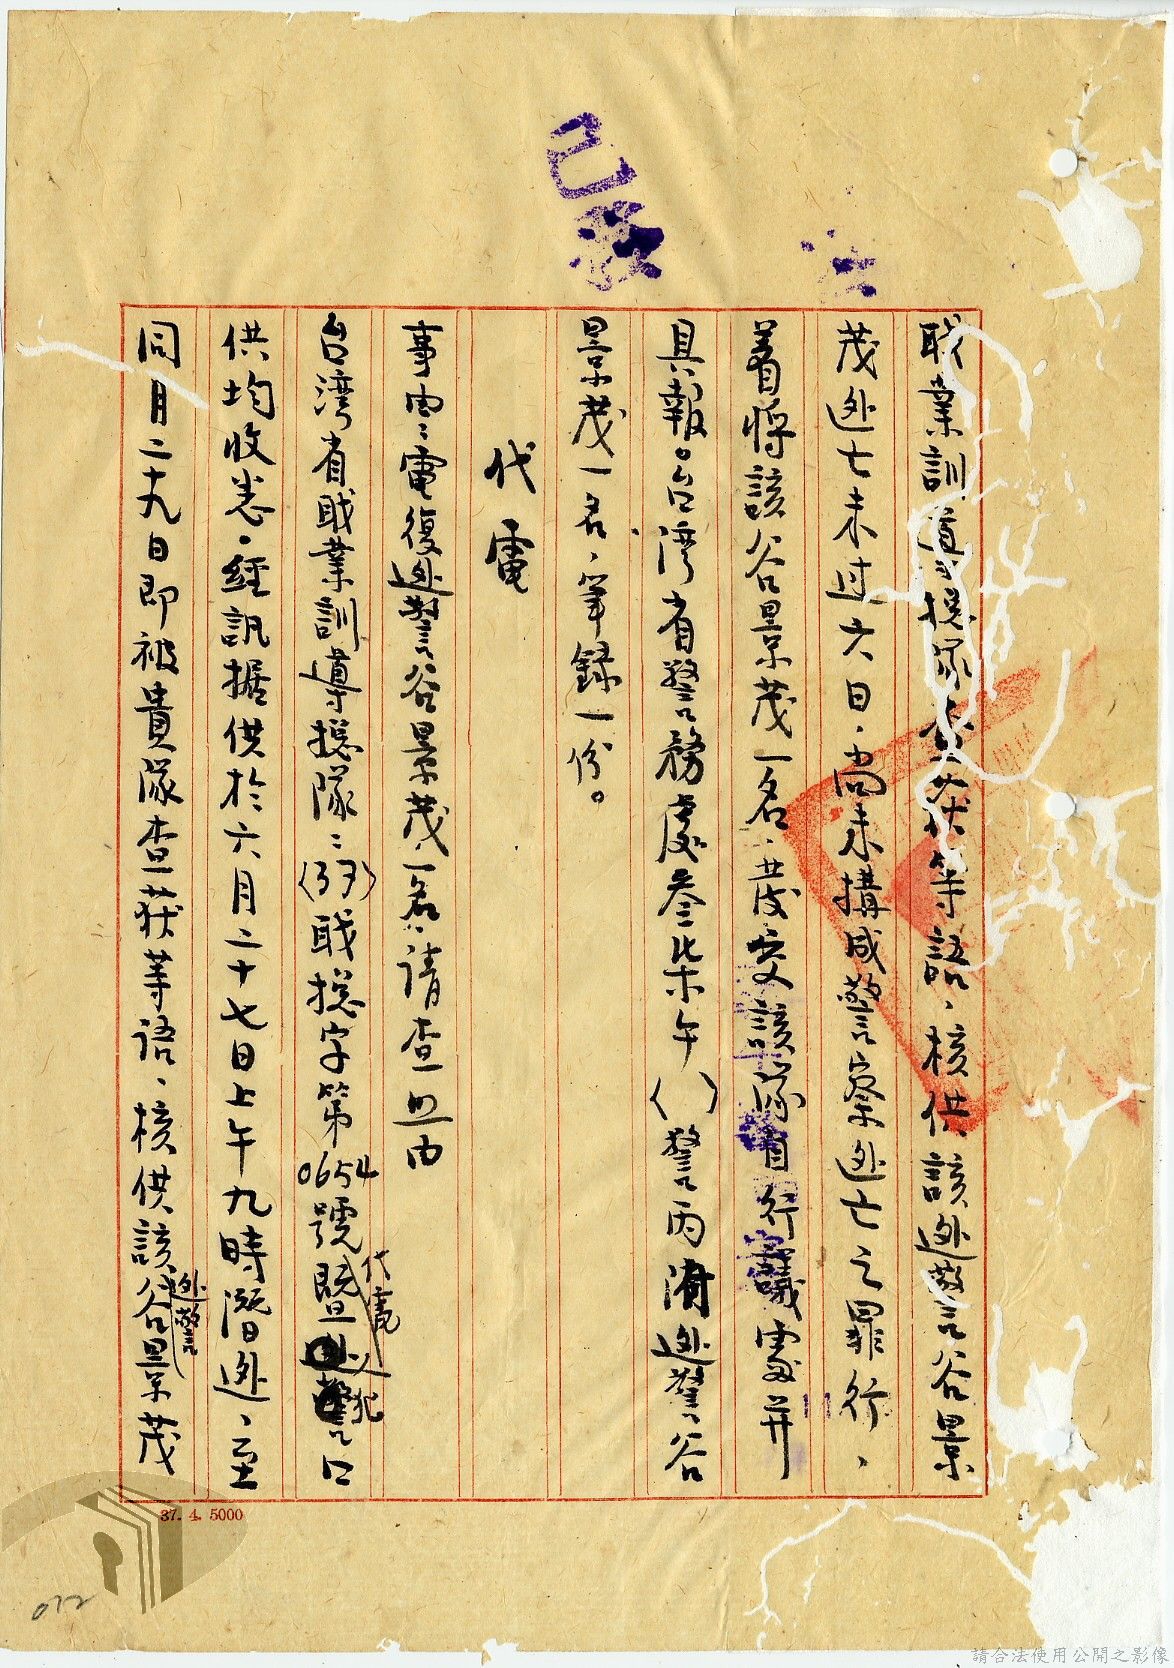 職業訓導總隊查获等語、核供該逃警谷景
茂逃亡未过六日、尚未構成警察逃亡之罪行、
着將該谷景茂一名、發交該隊自行議處并
具報。台湾省警務處叁柒午（ ）警丙 逃警谷
景茂一名、筆錄一份。
代電
事由：電復逃警谷景茂一名請查照由
台湾省职業訓導總隊：（37）职總字第0654號暨代電人犯口
供均收悉、經訊据供於六月二十七日上午九時潛逃、至
同月二十九日即被貴隊查获等語、核供該逃警谷景茂
已發
37. 4. 5000
072
請合法使用公開之影像